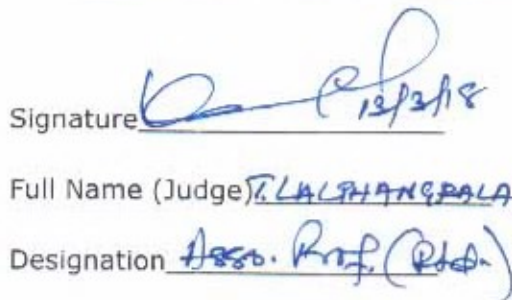 Signature 13/3/18
Full Name (Judge) T. LALTHANGPALA
Designation Asso. Prof. (Rtd.)